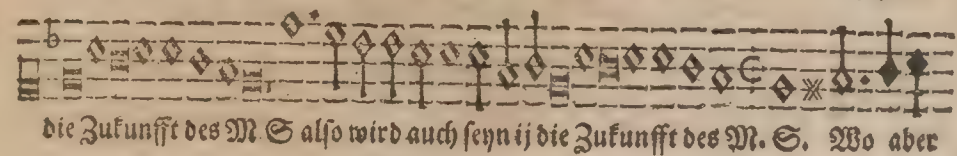 die Zukunfft des M S also wird auch seyn ij die Zukunfft des M. S. Wo aber